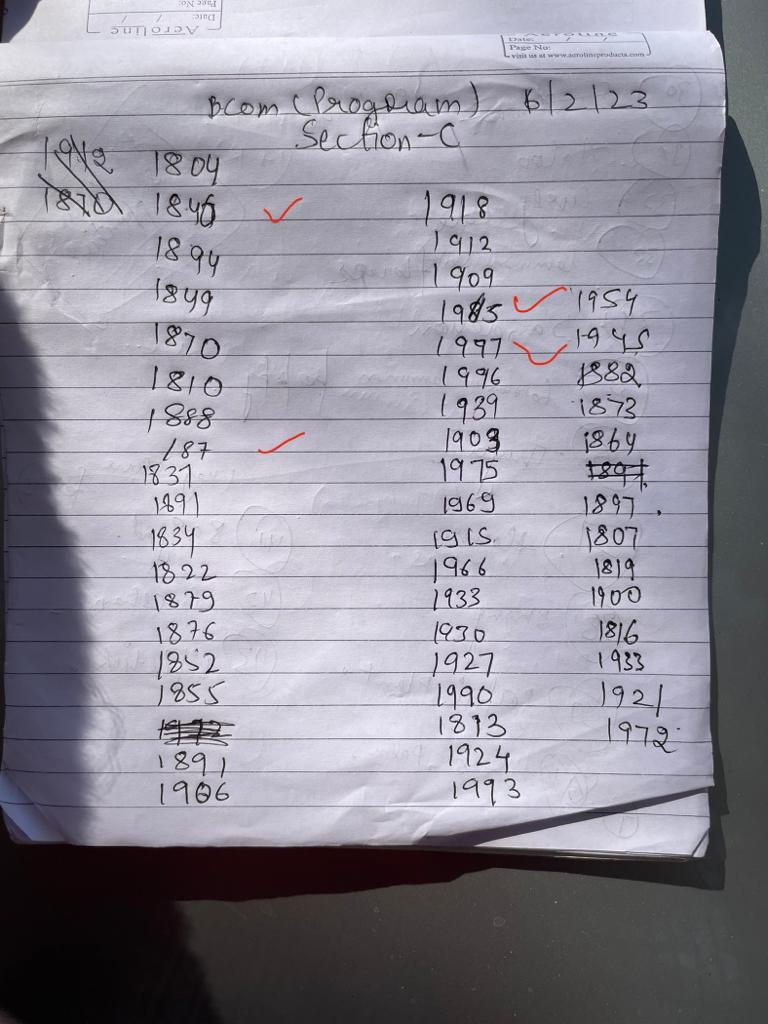 Aeroline
Date: / /
Page No:
Date: / /
Page No:
visit us at www.aerolineproducts.com
Bcom (Program) 6/2/23
Section-C
1912
1870
1804
1840
1894
1849
1870
1810
1888
187
1837
1891
1834
1822
1879
1876
1852
1855
1891
1906
1918
1912
1909
1985
1997
1996
1939
1903
1975
1969
1915
1966
1933
1930
1927
1990
1813
1924
1993
1954
1945
1882
1873
1864
1897
1807
1819
1900
1816
1933
1921
1972